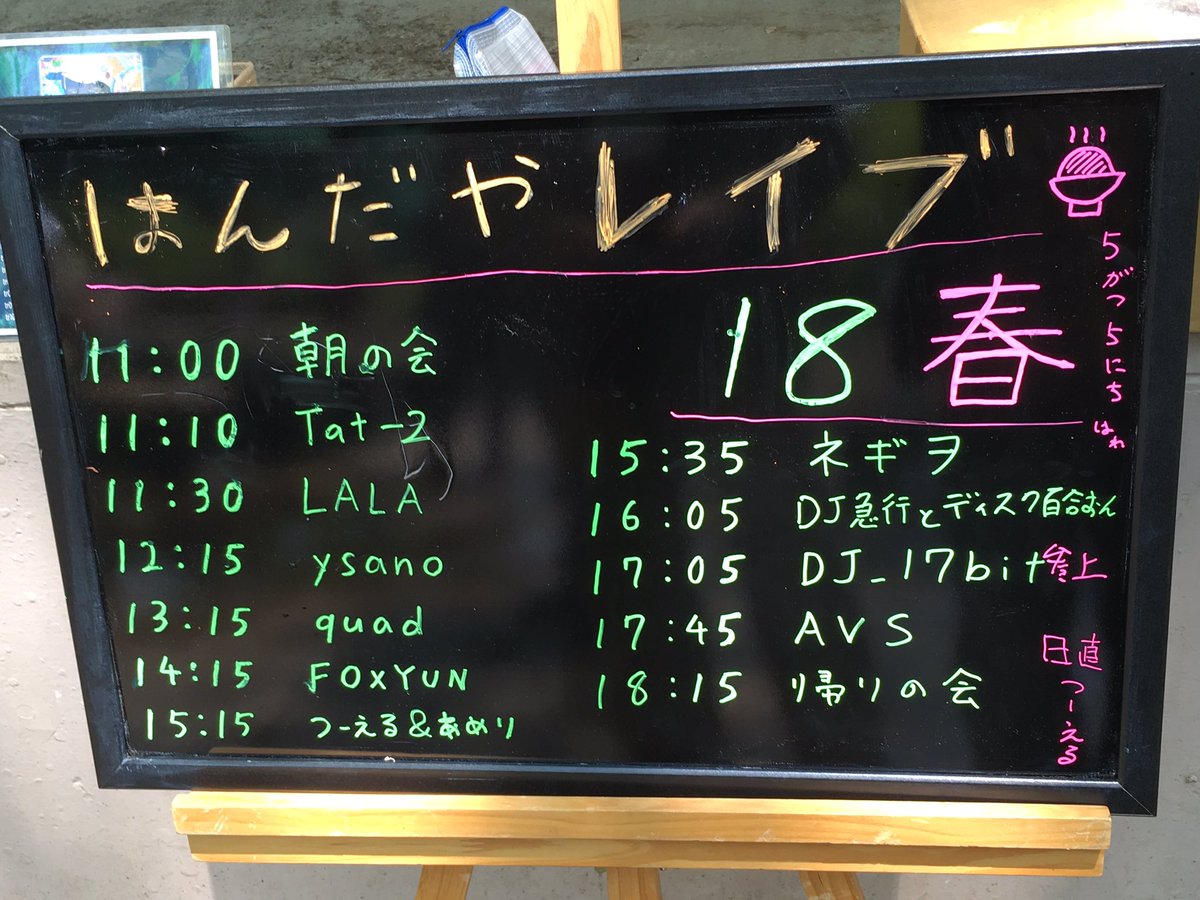 はんだやレイブ
18 春
5がつ5にち
はれ
11:00 朝の会
11:10 Tat-2
11:30 LALA
12:15 ysano
13:15 quad
14:15 FOXYUN
15:15 つーえる&あめり
15:35 ネギヲ
16:05 DJ急行とディスク百合おん
17:05 DJ_17bit参上
17:45 AVS
18:15 帰りの会
日直
つーえる